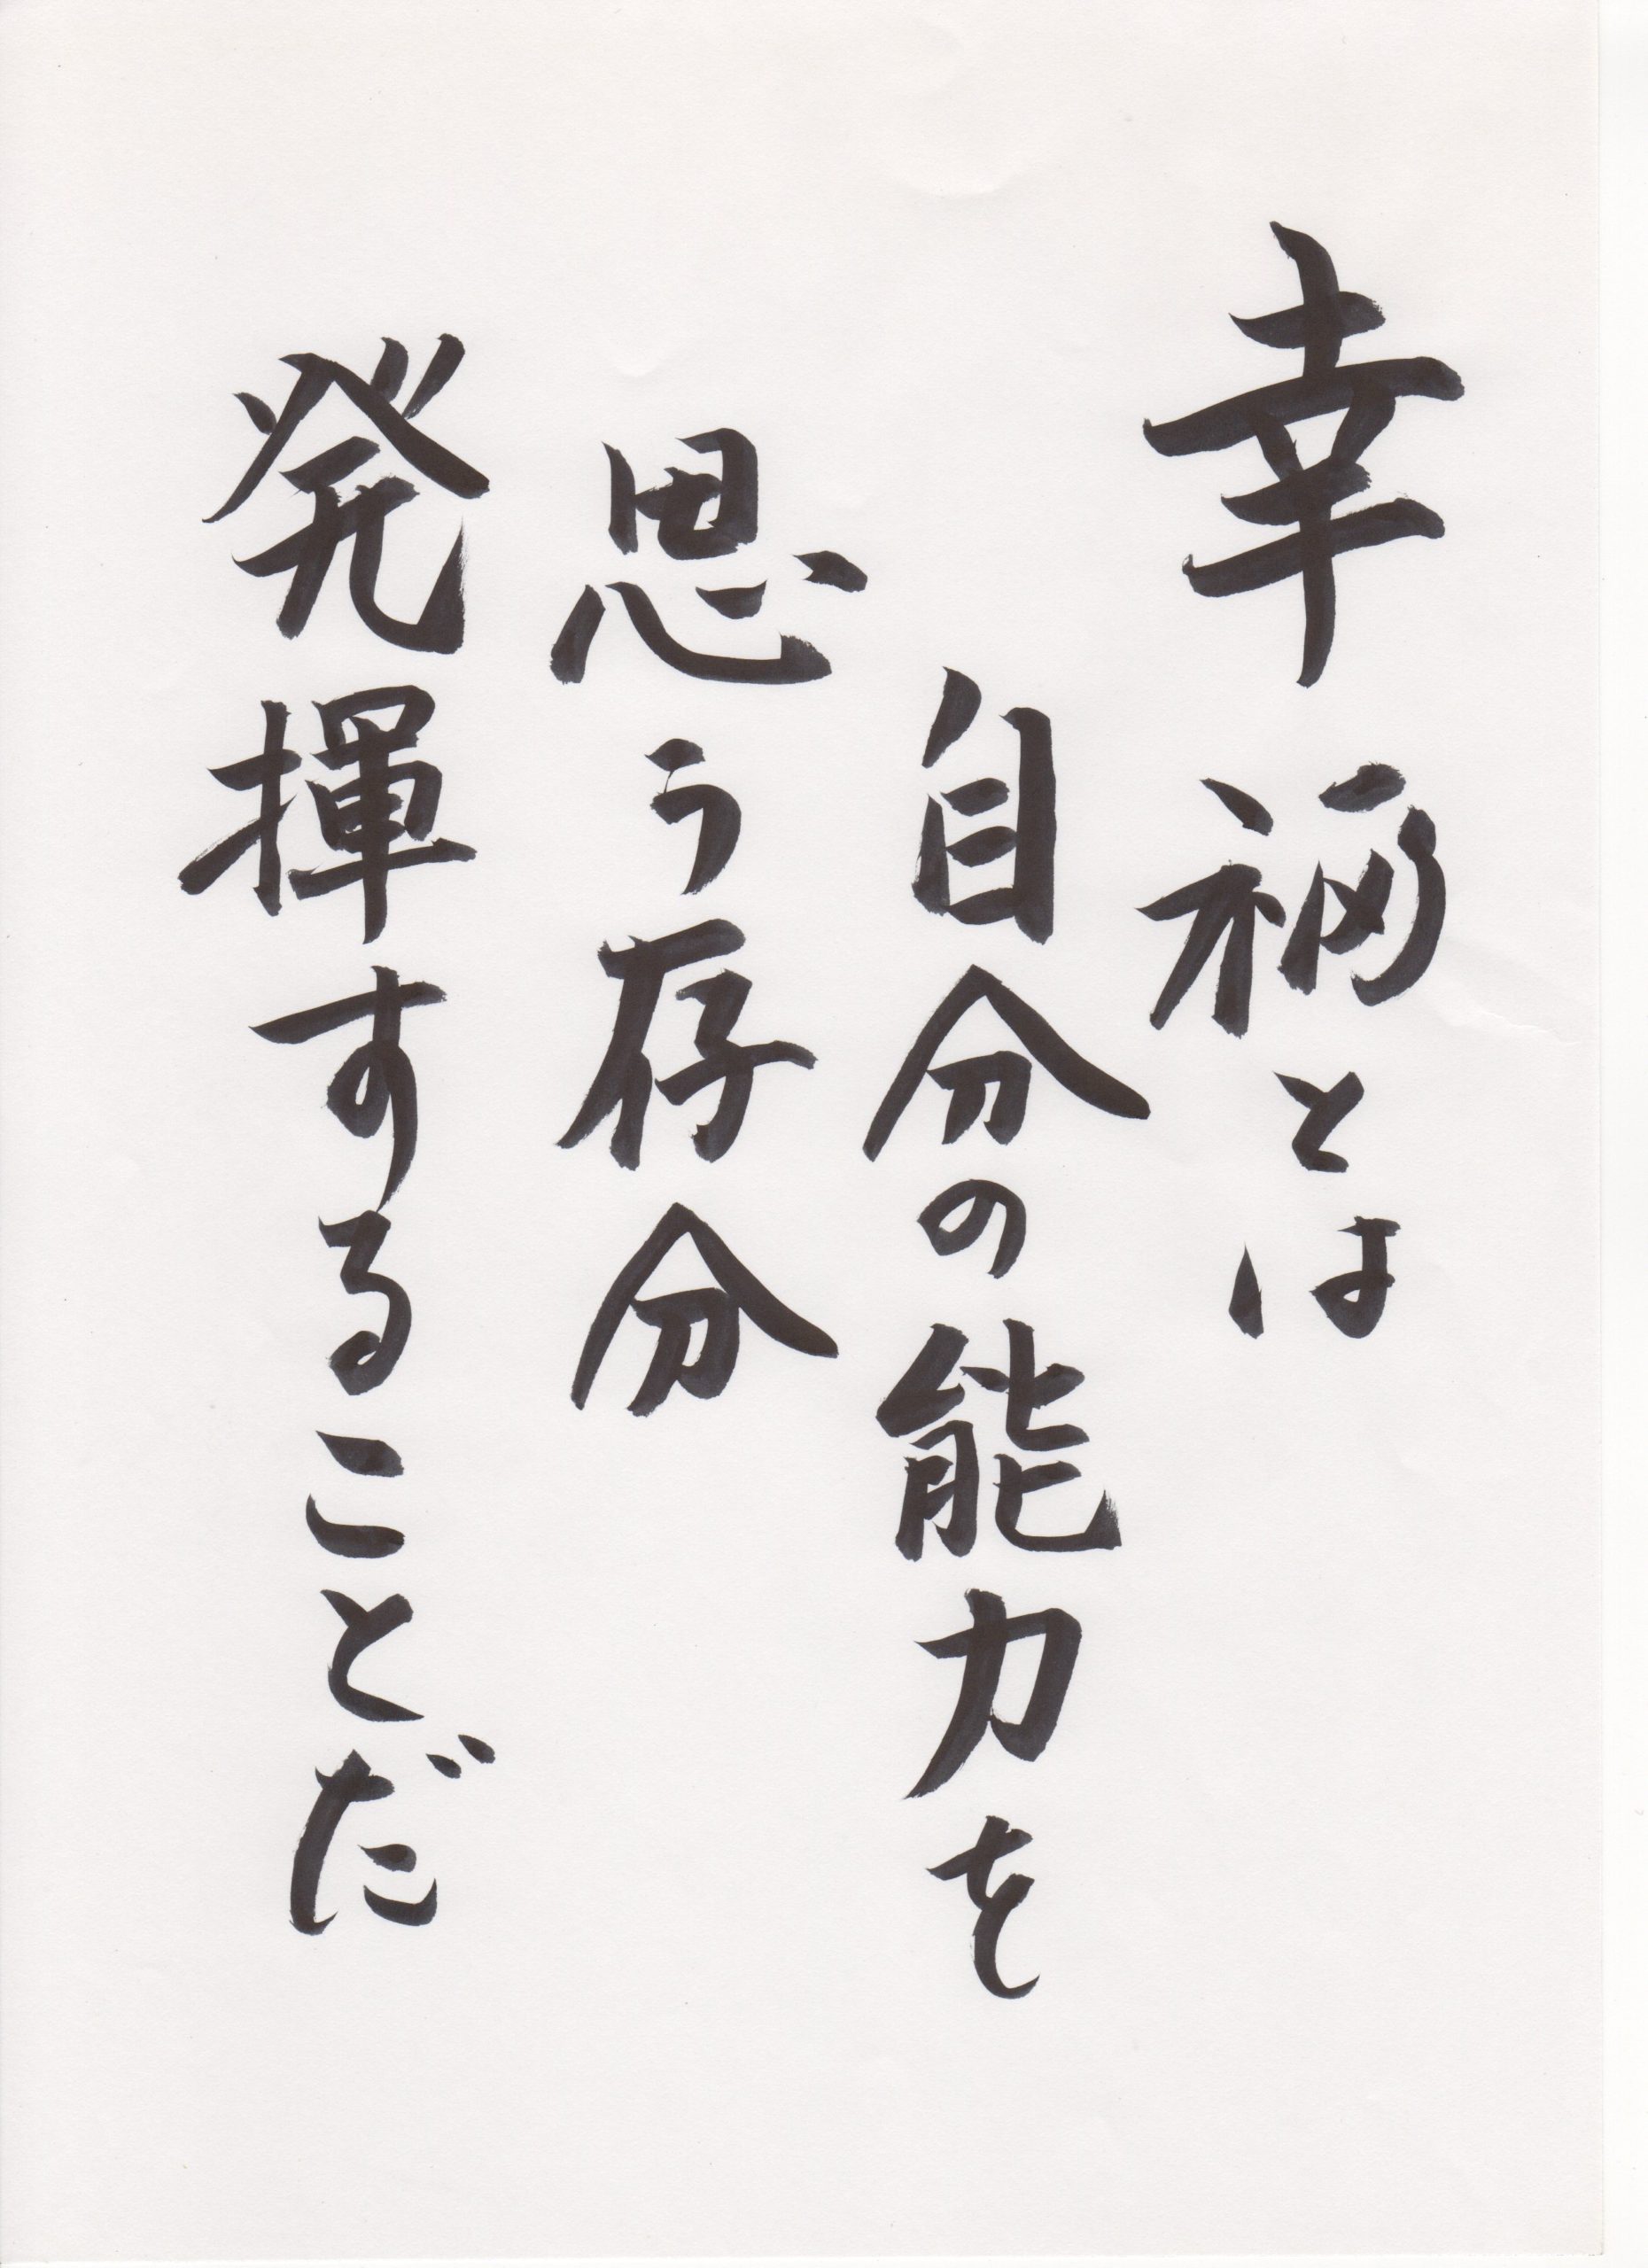 幸福とは
自分の能力を
思う存分
発揮することだ